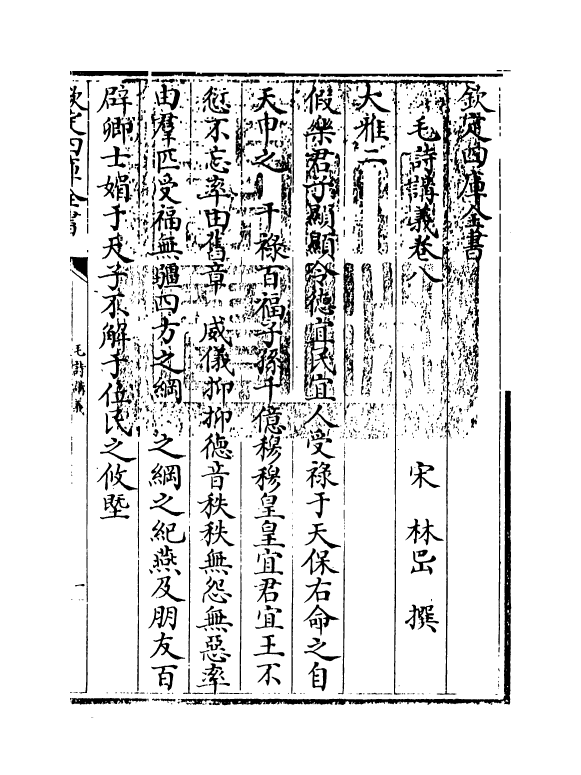 欽定四庫全書
毛詩講義卷八
宋 林岊 撰
大雅二
假樂君子顯顯令德宜民宜人受祿于天保右命之自
天申之 千祿百福子孫千億穆穆皇皇宜君宜王不
愆不忘率由舊章 威儀抑抑德音秩秩無怨無惡率
由羣匹受福無疆四方之綱 之綱之紀燕及朋友百
辟卿士媚于天子不解于位民之攸塈
欽定四庫全書
毛詩講義
一